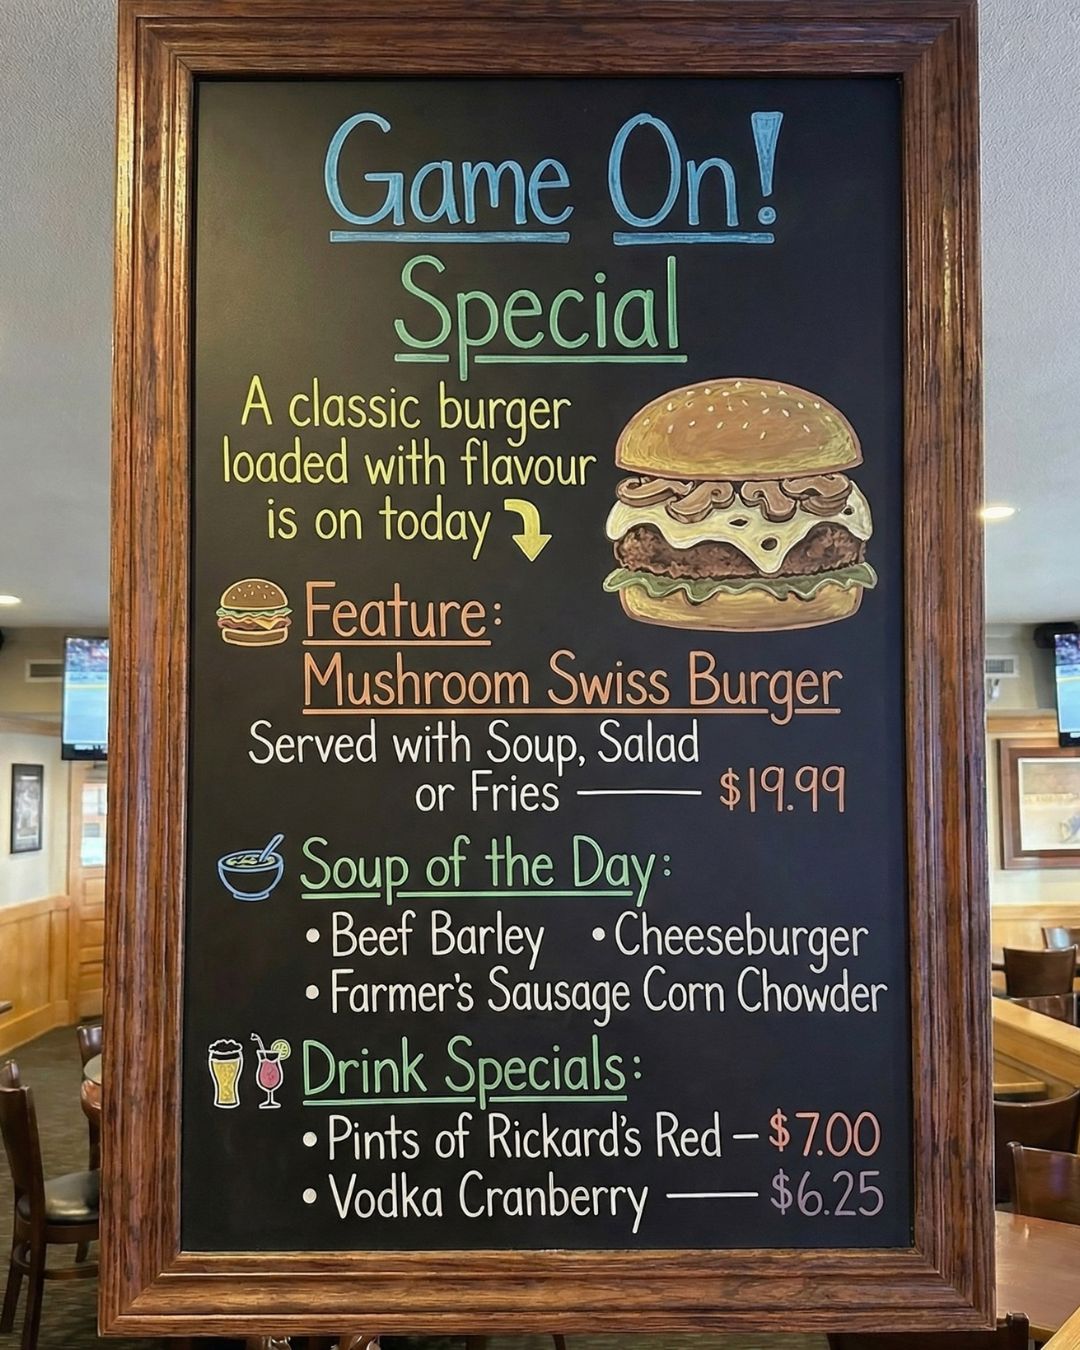 Game On!
Special
A classic burger
loaded with flavour
is on today
Feature:
Mushroom Swiss Burger
Served with Soup, Salad
or Fries — $19.99
Soup of the Day:
• Beef Barley • Cheeseburger
• Farmer's Sausage Corn Chowder
Drink Specials:
• Pints of Rickard's Red – $7.00
• Vodka Cranberry — $6.25